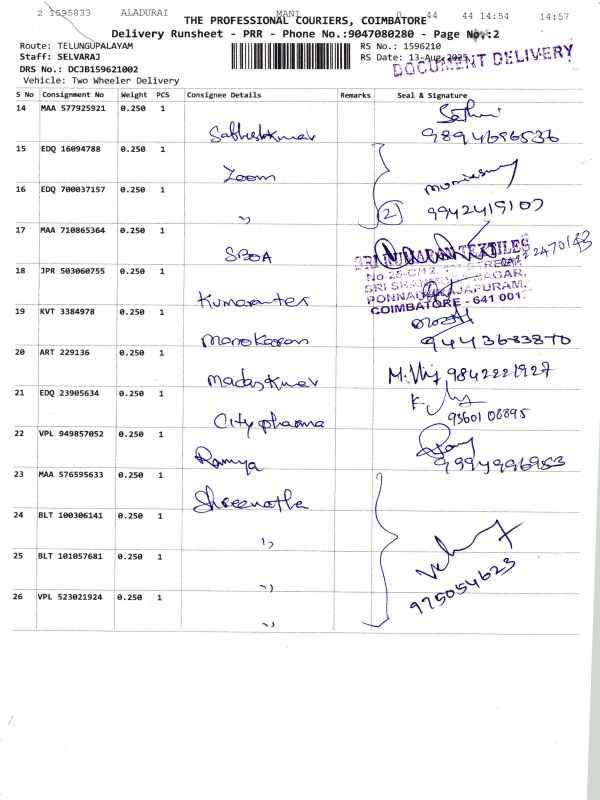 2 1595833 ALADURAI MANI 0 44 44 14:54 14:57
THE PROFESSIONAL COURIERS, COIMBATORE
Delivery Runsheet - PRR - Phone No.:9047080280 - Page No.:2
Route: TELUNGUPALAYAM RS No.: 1596210
Staff: SELVARAJ RS Date: 13-Aug-2025
DOCUMENT DELIVERY
DRS No.: DCJB159621002
Vehicle: Two Wheeler Delivery
S No Consignment No Weight PCS Consignee Details Remarks Seal & Signature
14 MAA 577925921 0.250 1
Sathishkumar 9894686536
15 EDQ 16094788 0.250 1
Zoom
16 EDQ 700037157 0.250 1
" 2 9942419107
17 MAA 710865364 0.250 1
SBOA
SRI KUMARAN TEXTILES
18 JPR 503060755 0.250 1
No.25-C/12,
SRI SHANMUGA NAGAR,
PONNAIAHRAJAPURAM,
COIMBATORE - 641 001.
Kumarantex
19 KVT 3384978 0.250 1
Manokaran 9443683870
20 ART 229136 0.250 1
Madaskumar M.Vij 9842221927
21 EDQ 23905634 0.250 1
City pharma 9360106895
22 VPL 949857052 0.250 1
Ramya 9994996953
23 MAA 576595633 0.250 1
Shreenatha
24 BLT 100306141 0.250 1
"
25 BLT 101057681 0.250 1
" 975054623
26 VPL 523021924 0.250 1
"